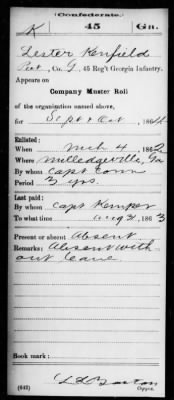 Confederate.
K 45 Ga.
Lester Kenfield
Pvt, Co. G, 45 Reg't Georgia Infantry.
Appears on
Company Muster Roll
of the organization named above,
for Sept & Oct, 1864
Enlisted:
When Mch 4, 1862
Where Milledgeville, Ga
By whom Capt Conn
Period 3 yrs.
Last paid:
By whom Capt Kemper
To what time Aug 31, 1863
Present or absent Absent
Remarks: Absent with
out leave
Book mark:
(642) Copyist.